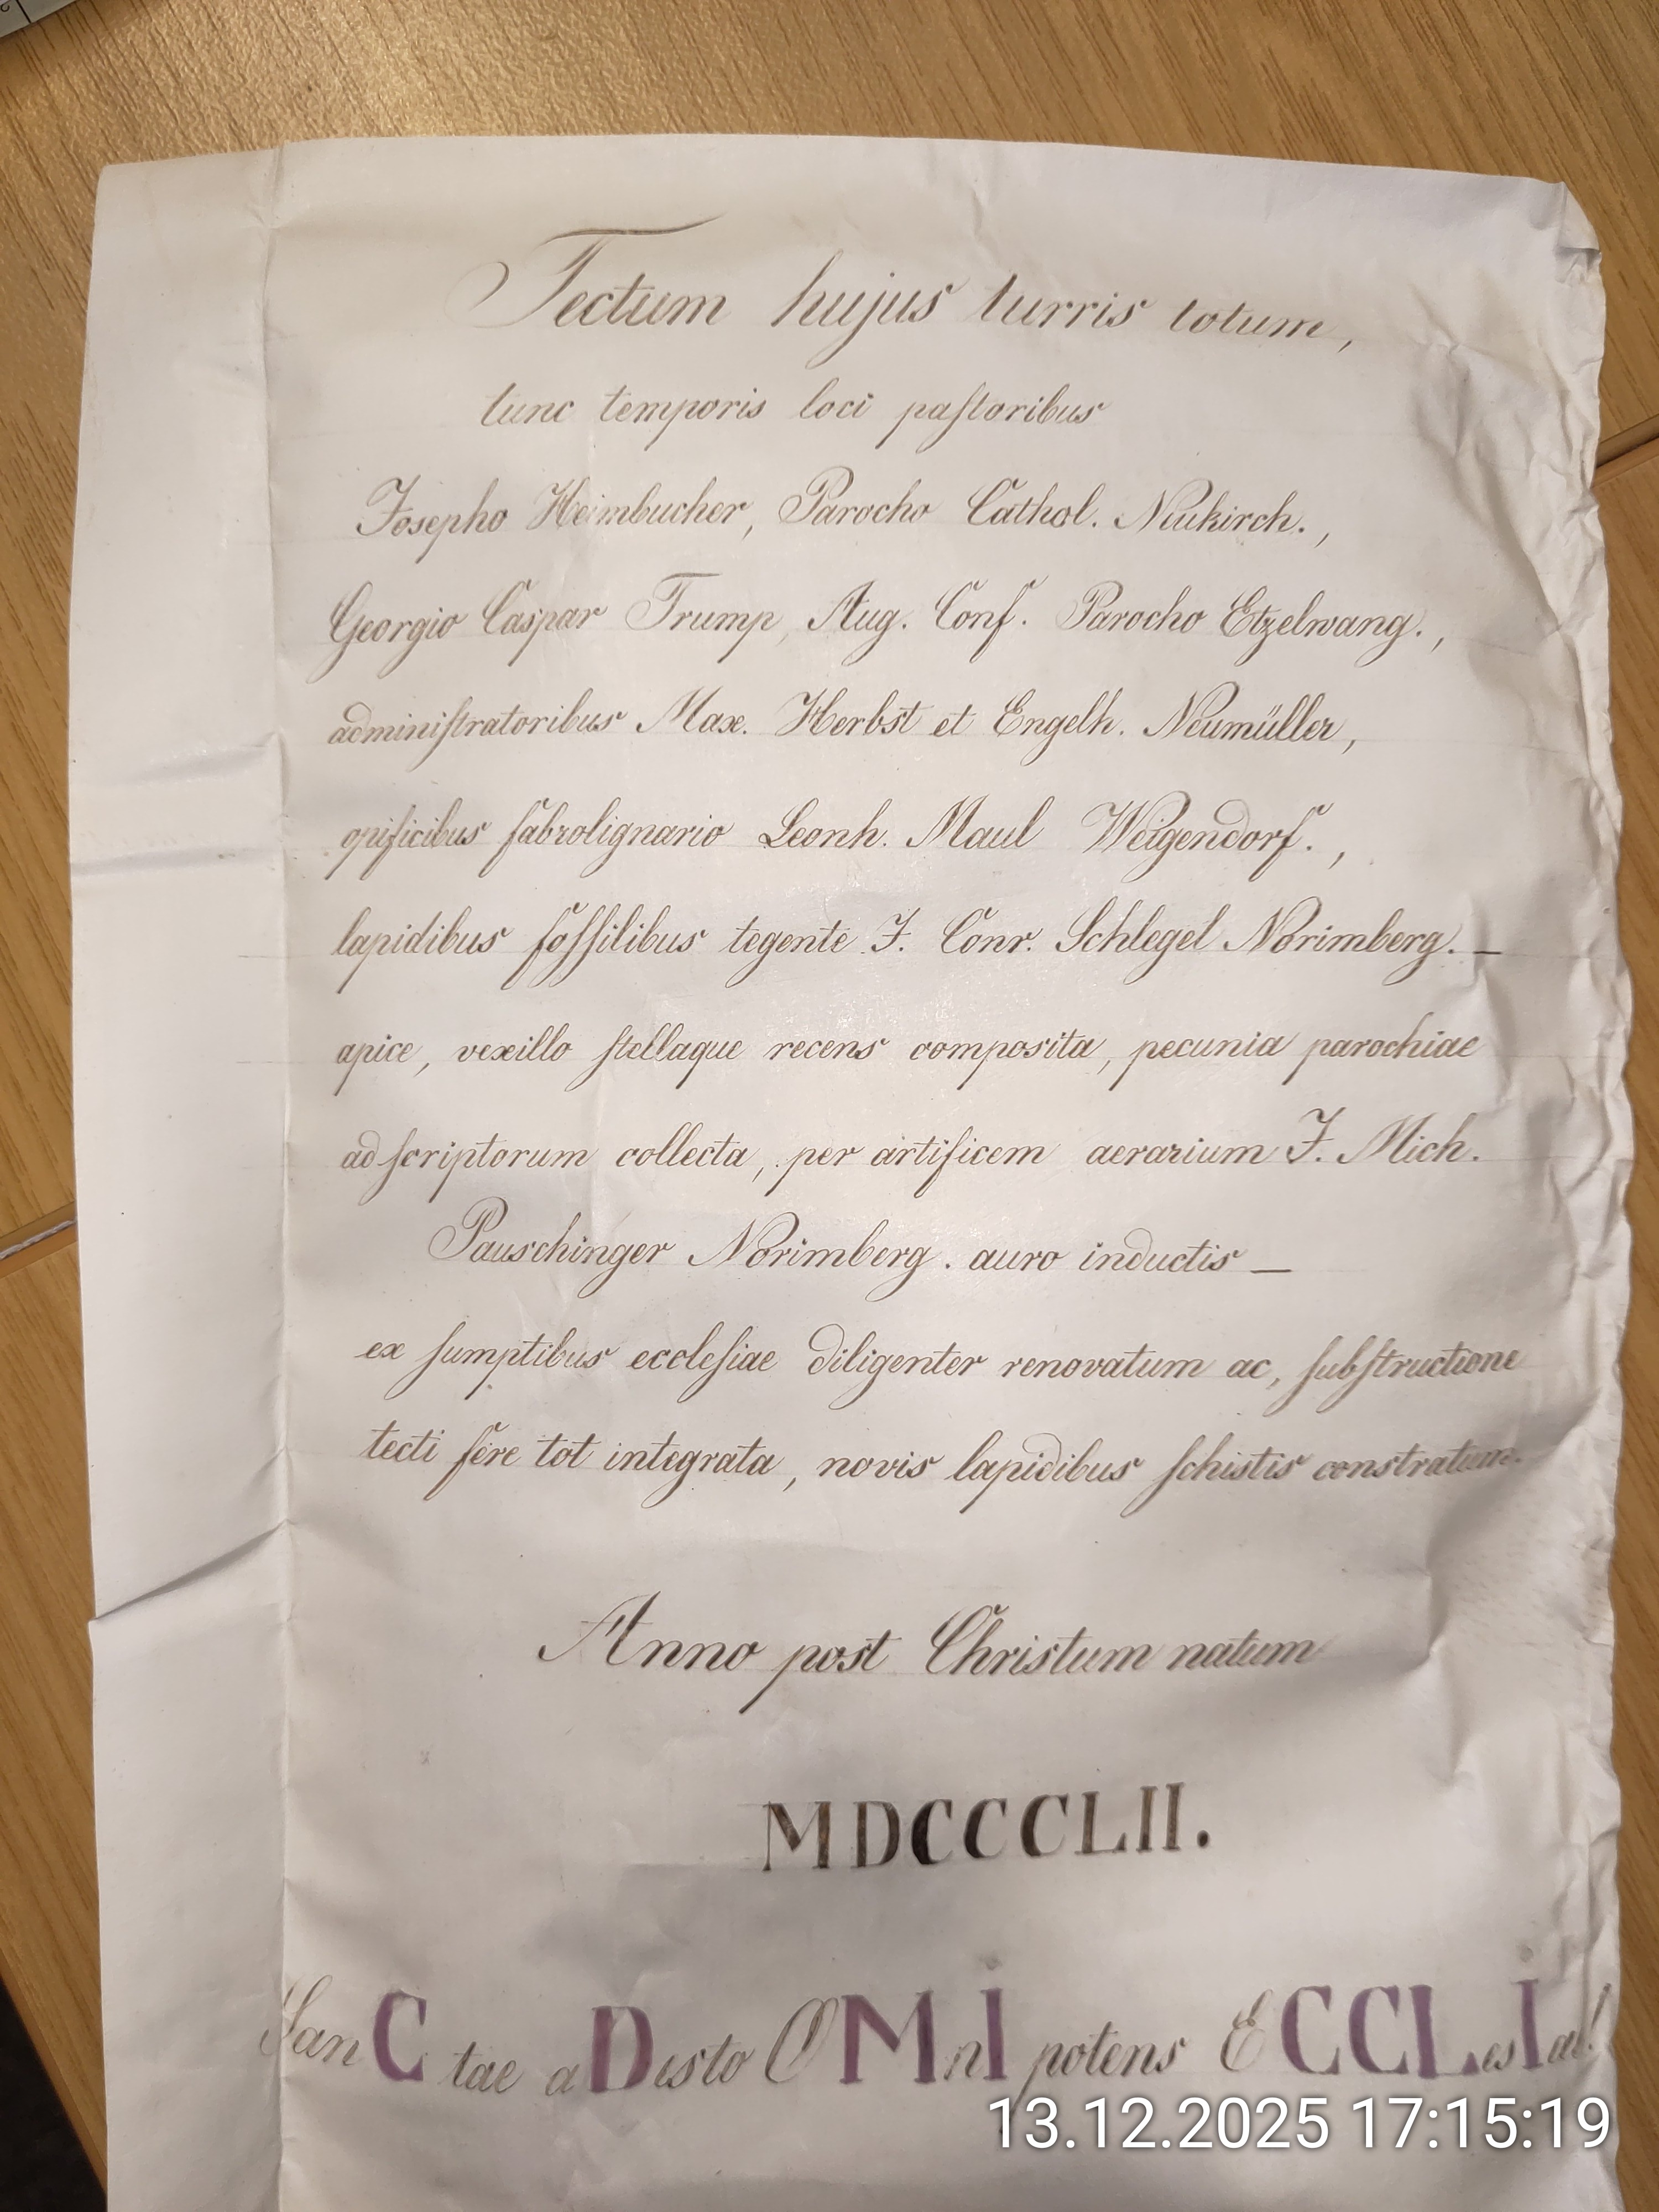 Tectum hujus turris totum,
tunc temporis loci paſtoribus
Josepho Heimbucher, Parocho Cathol. Neukirch.,
Georgio Caspar Trump, Aug. Conf. Parocho Etzelwang.,
adminiſtratoribus Max. Herbst et Engelh. Neumüller,
opificibus fabrolignario Leonh. Maul Weigendorf.,
lapidibus foſſilibus tegente J. Conr. Schlegel Norimberg. —
apice, vexillo ſtellaque recens composita, pecunia parochiae
adſcriptorum collecta, per artificem aerarium J. Mich.
Pauschinger Norimberg. auro inductis —
ex ſumptibus eccleſiae diligenter renovatum ac, ſubſtructione
tecti fere tot integrata, novis lapidibus ſchistis constratum.
Anno post Christum natum
MDCCCLII.
SanCtae aDesto OMnIpotens ECCLesIae!
13.12.2025 17:15:19